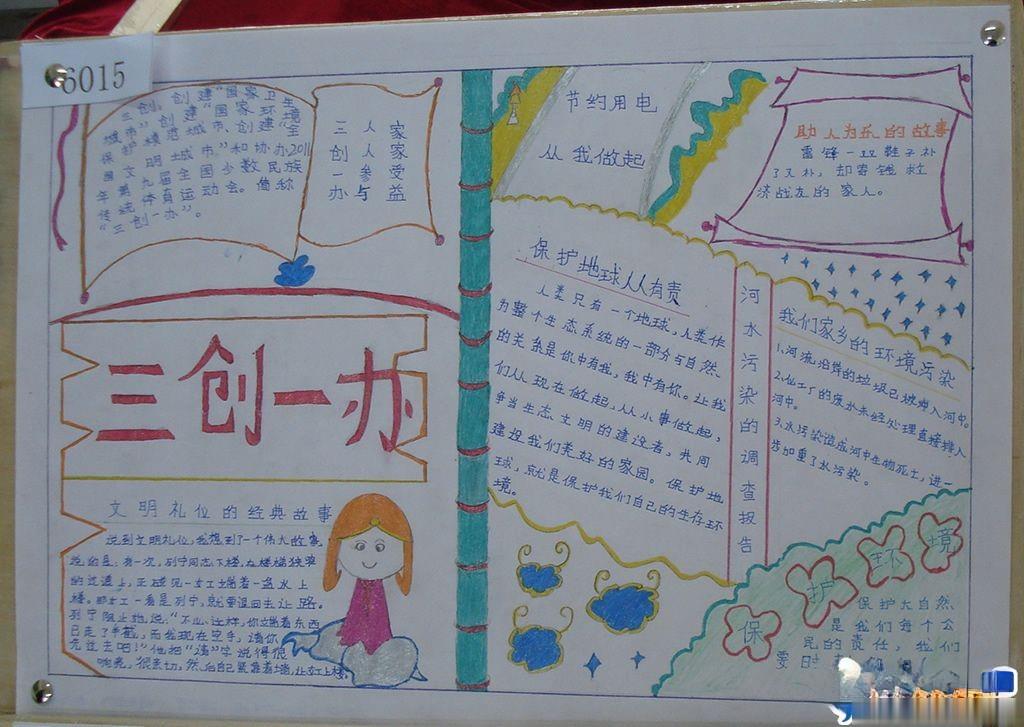 6015
三创，创建"国家卫生
城市"创建"国家环境
保护模范城市、创建"全
国文明城市"和协办2011
年第九届全国少数民族
传统体育运动会。简称
"三创一办"。
三创一办
人人参与
家家受益
三创一办
文明礼仪的经典故事
说到文明礼仪，我想到了一个伟大故事，
说的是：有一次，列宁同志下楼，在楼梯狭窄
的过道上，正碰见一女工端着一盆水上
楼。那女工一看是列宁，就要退回去让路。
列宁阻止她说："不必这样，你端着东西
已走了半截，而我现在空手，请你
先过去吧！"他把"请"字说得很
响亮，很亲切。然后自己紧靠着墙，让女工上楼。
节约用电
从我做起
助人为乐的故事
雷锋一双鞋子补
了又补，却寄钱救
济战友的家人。
保护地球人人有责
人类只有一个地球，人类作
为整个生态系统的一部分与自然
的关系是你中有我，我中有你。让我
们从现在做起，从小事做起，
争当生态文明的建设者，共同
建设我们美好的家园。保护地
球，就是保护我们自己的生存环
境。
河水污染的调查报告
我们家乡的环境污染
1、河流沿岸的垃圾已被排入河中。
2、化工厂的废水未经处理直接排入
河中。
3、水污染造成河中生物死亡，进一
步加重了水污染。
保护环境
保护大自然，
是我们每个公
民的责任，我们
要日